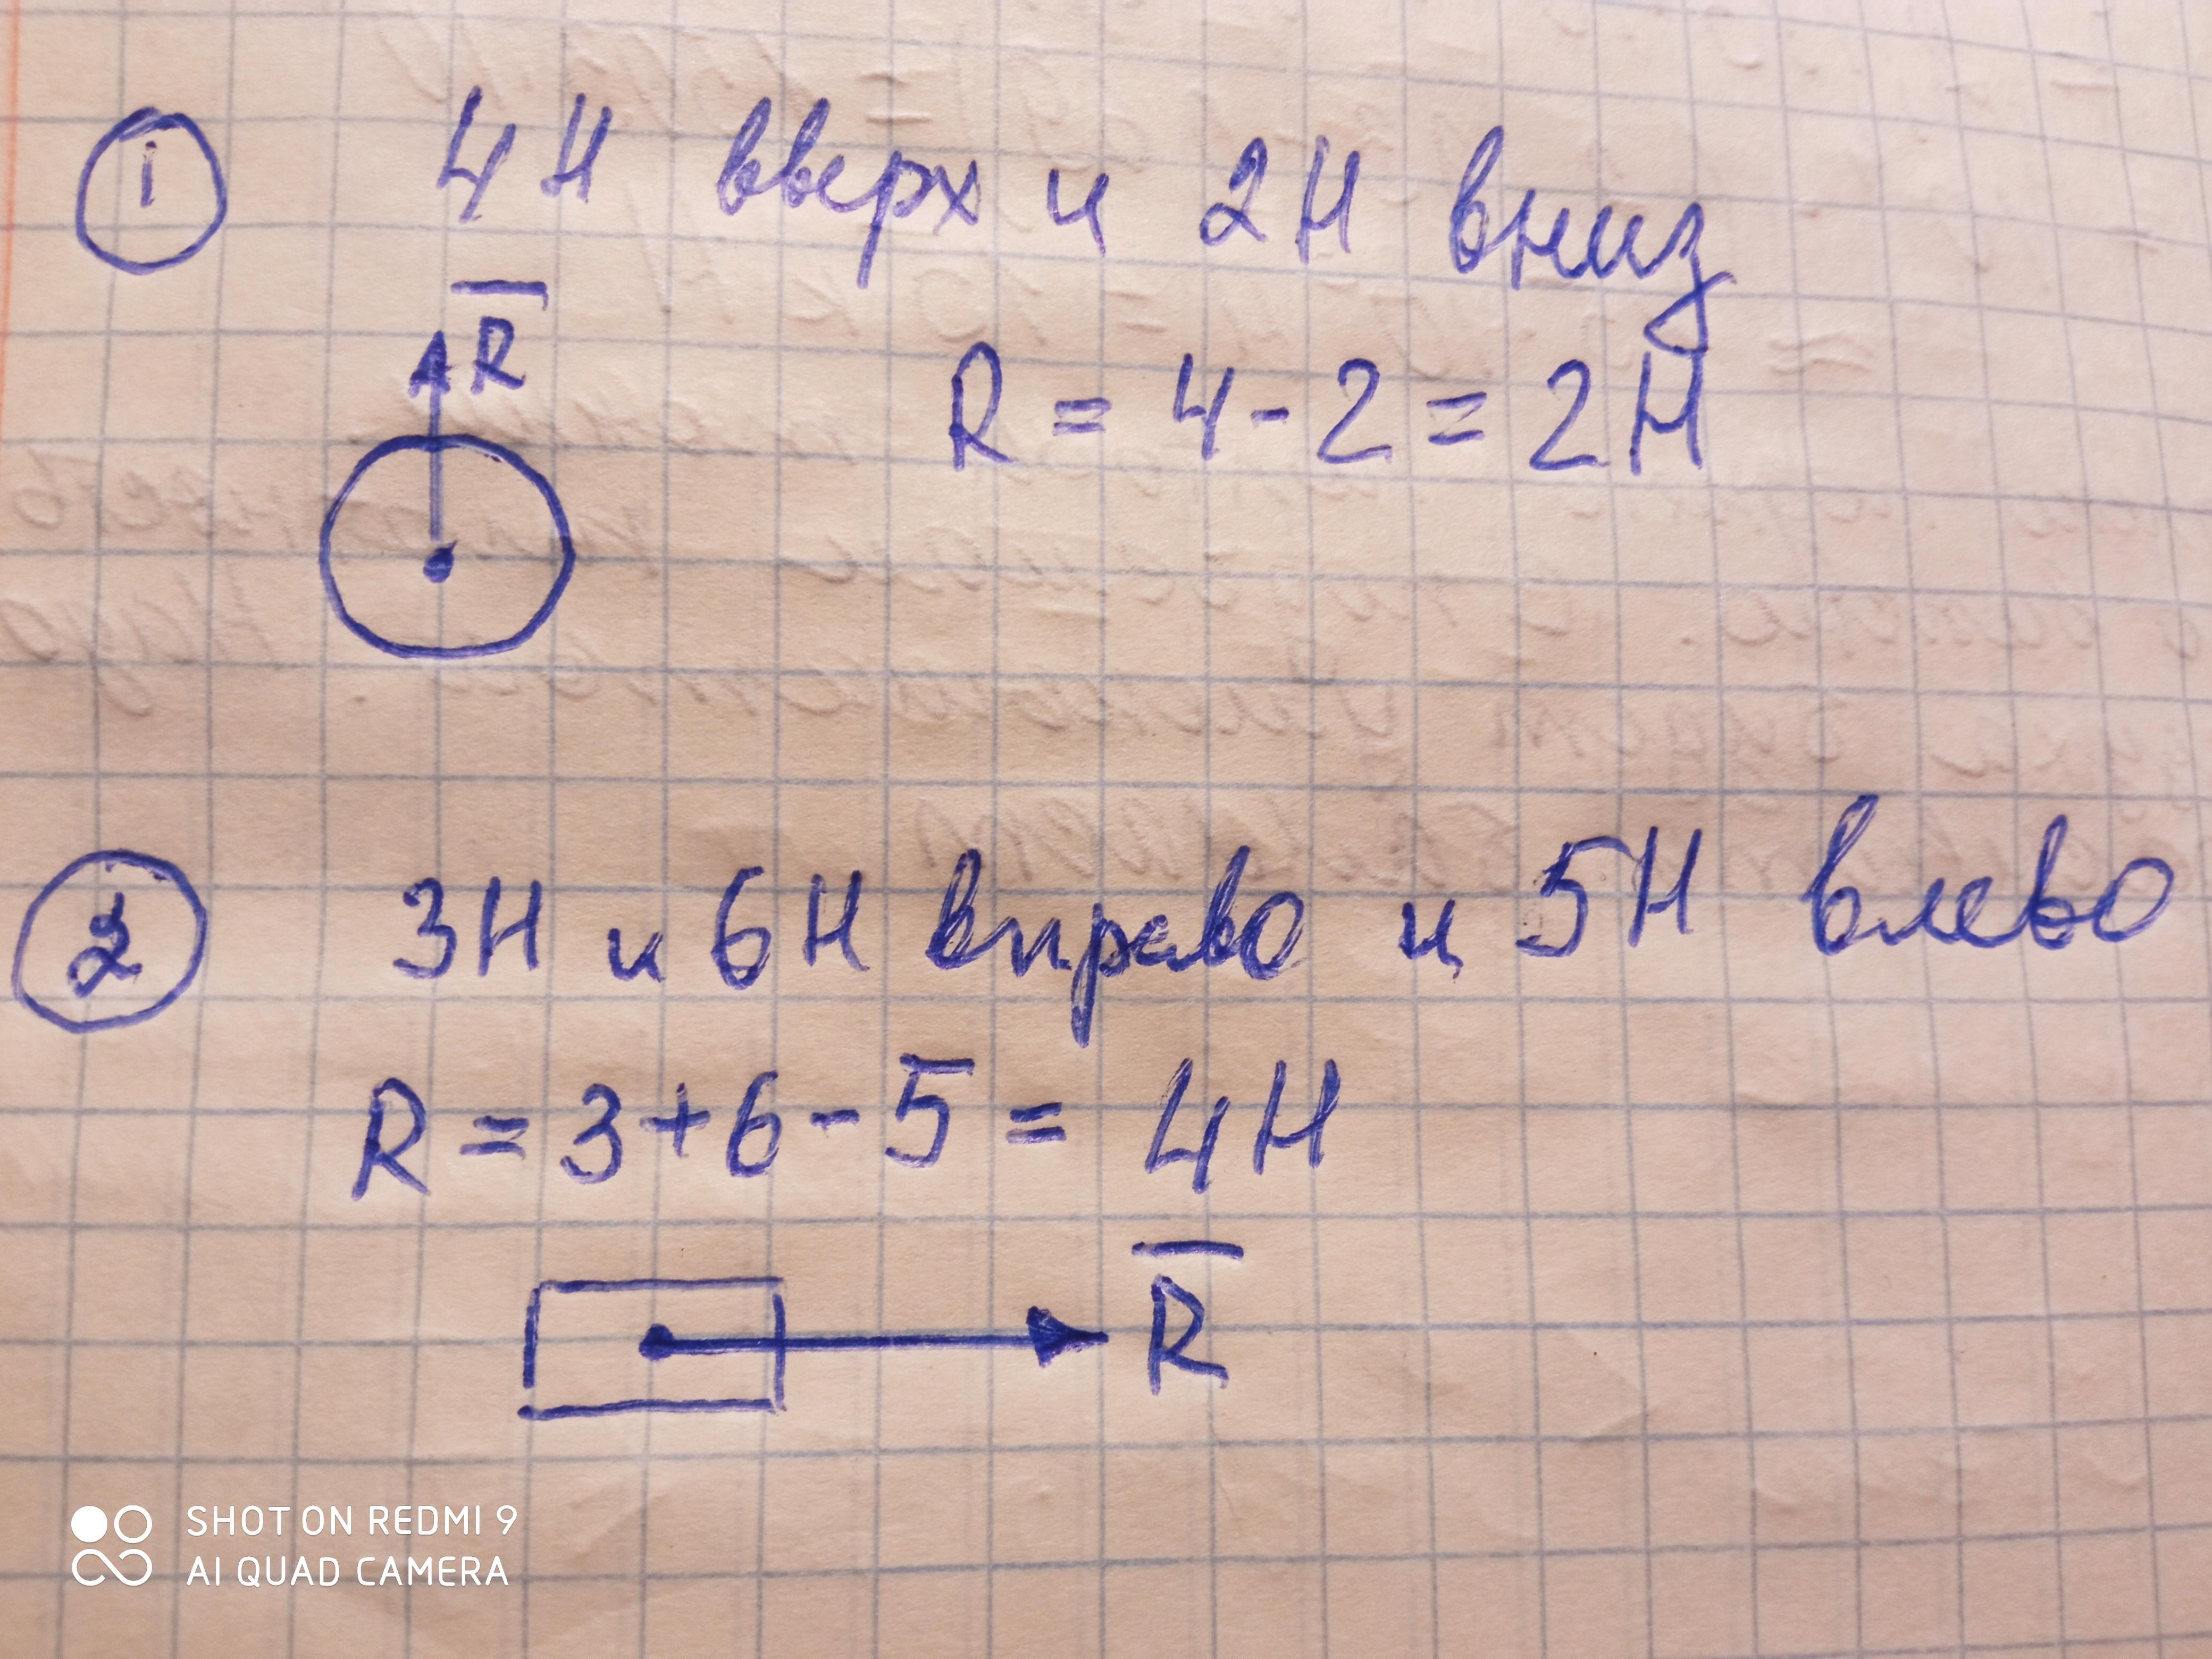 1 4Н вверх и 2Н вниз
R
R = 4 - 2 = 2Н
2 3Н и 6Н вправо и 5Н влево
R = 3 + 6 - 5 = 4Н
R
SHOT ON REDMI 9
AI QUAD CAMERA